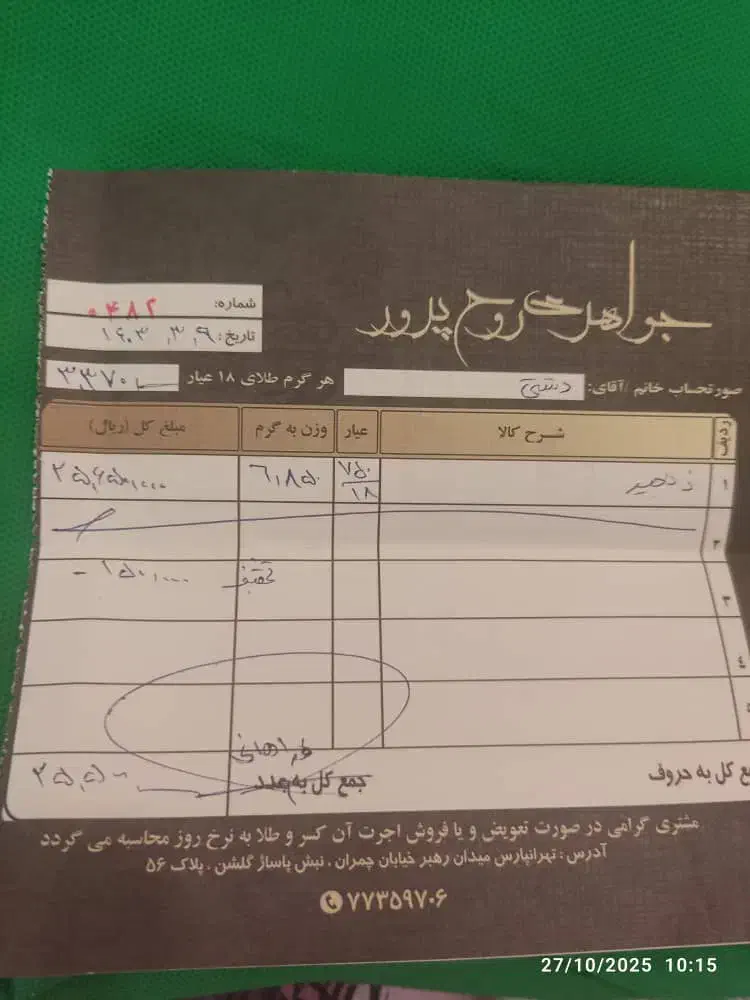 جواهری روح پرور
شماره: ۰۴۸۲
تاریخ: ۱۴۰۳, ۳, ۹
صورتحساب خانم /آقای: دشتی
هر گرم طلای ۱۸ عیار ۳,۳۷۰,۰۰۰
ردیف شرح کالا عیار وزن به گرم مبلغ کل (ریال)
۱ زنجیر ۷۵۰/۱۸ ۶,۸۵۰ ۲۵,۶۵۰,۰۰۰
۲
۳ تخفیف ۱۵۰,۰۰۰ -
۴
جمع کل به حروف جمع کل به عدد ۲۵,۵۰۰
مشتری گرامی در صورت تعویض و یا فروش اجرت آن کسر و طلا به نرخ روز محاسبه می گردد
آدرس : تهرانپارس میدان رهبر خیابان چمران . نبش پاساژ گلشن . پلاک ۵۶
۷۷۳۵۹۷۰۶
27/10/2025 10:15